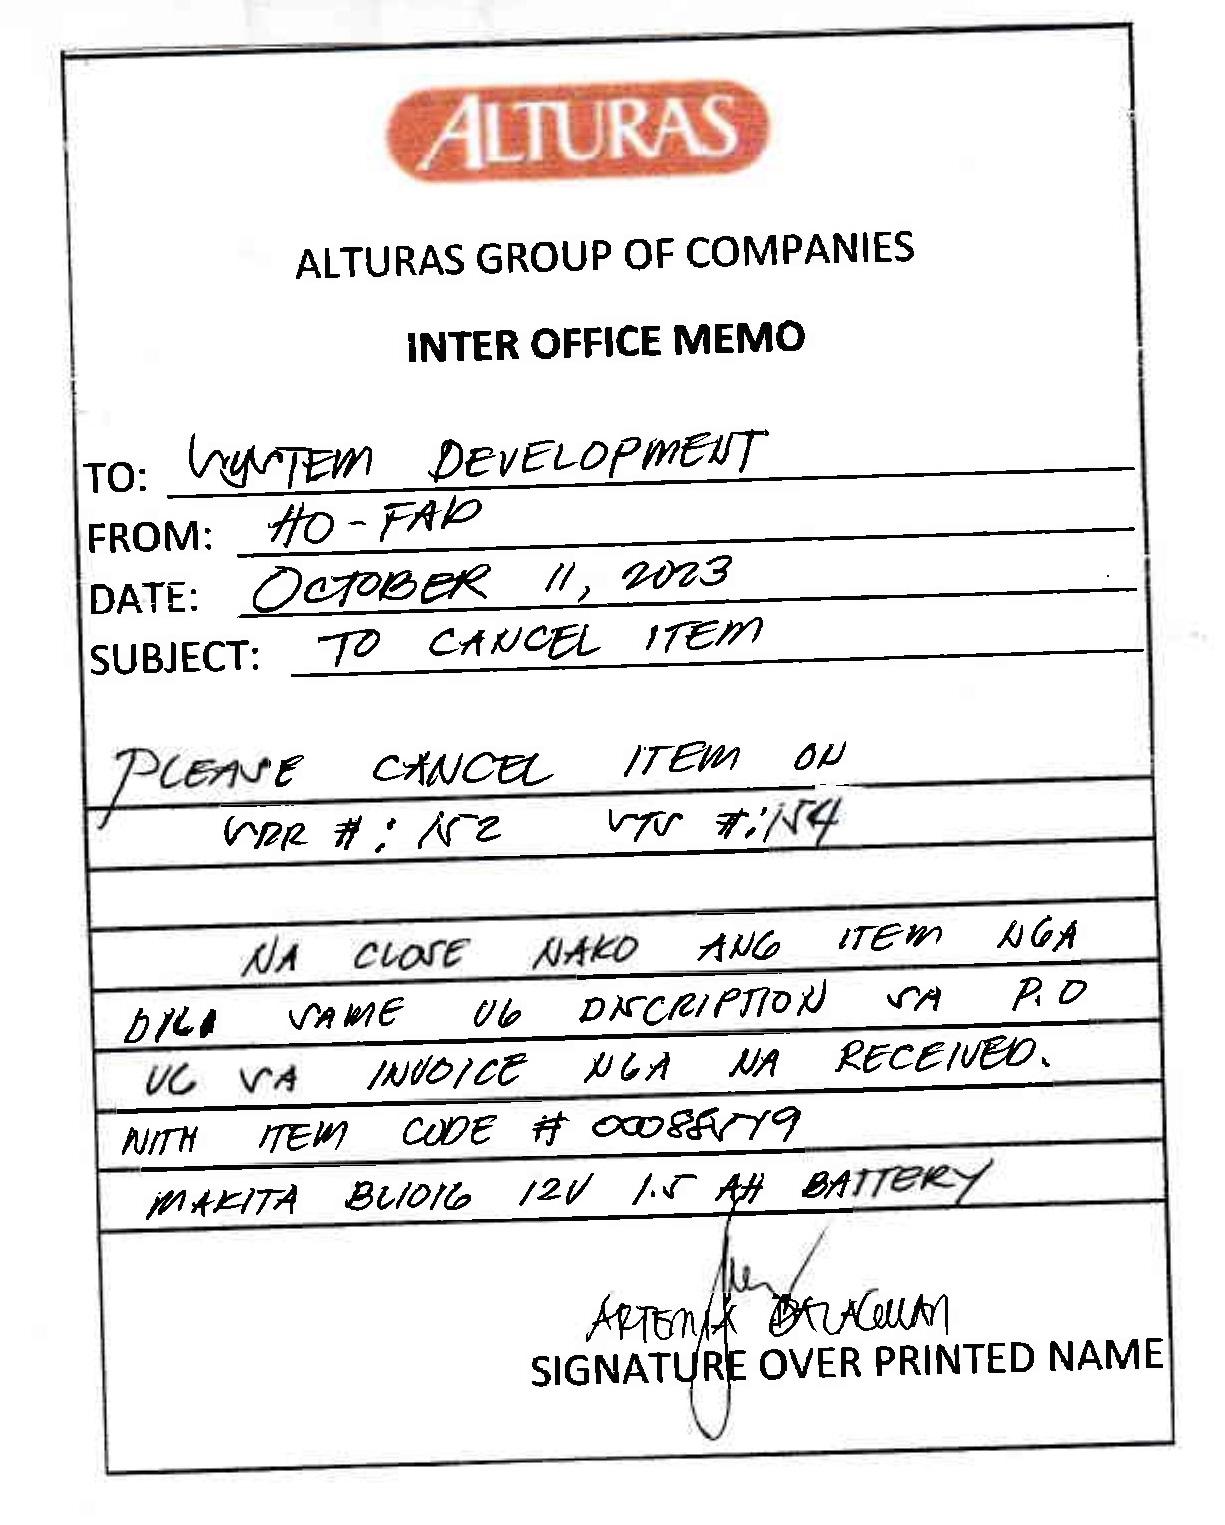 ALTURAS
ALTURAS GROUP OF COMPANIES
INTER OFFICE MEMO
TO: SYSTEM DEVELOPMENT
FROM: HO - FAD
DATE: OCTOBER 11, 2023
SUBJECT: TO CANCEL ITEM
PLEASE CANCEL ITEM ON
SRR #: 152 STS #: 154
NA CLOSE NAKO ANG ITEM NGA
DILI SAME UG DISCRIPTION SA P.O
UG SA INVOICE NGA NA RECEIVED.
WITH ITEM CODE #
MAKITA BL1016 12V 1.5 AH BATTERY
SIGNATURE OVER PRINTED NAME